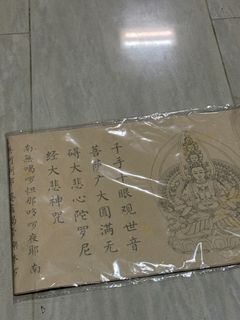 千手千眼观世音
菩萨广大圆满无
碍大悲心陀罗尼
经大悲神咒
南無喝囉怛那哆囉夜耶 南